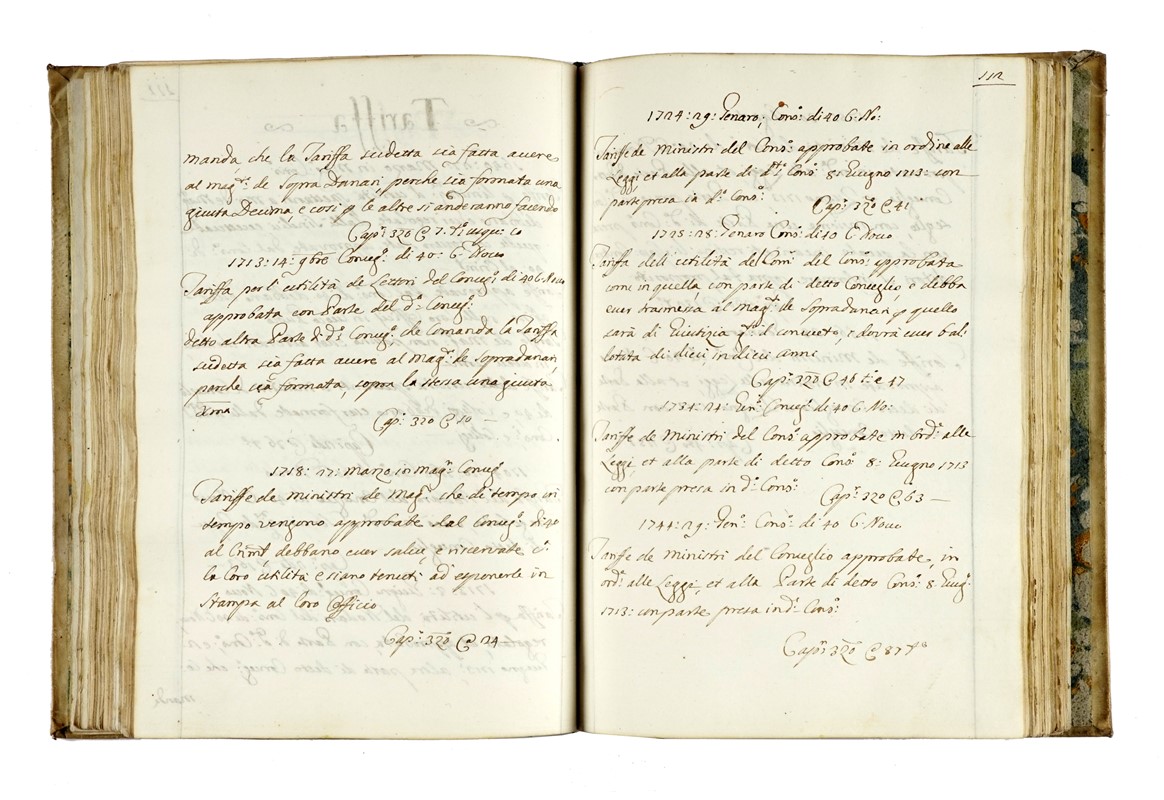 manda, che la Tariffa sudetta sia fatta avere
al mag:to de Sopra Danari, perche sia formata una
giusta Decima, e così p le altre si anderanno facendo
Cap:o 320 @ 7. t:o usque: 10
1713: 14: 9bre Conseg:o di 40: C: Novo
Tariffa per l' utilità de Lettori del Conseg:o di 40 C. Novo
approbata con Parte del d:o Conseg:o
detto altra Parte di d:o Conseg:o che comanda la Tariffa
sudetta sia fatta avere al Mag:to de Sopradanari,
perche sia formata, sopra la stessa una giusta
Xma
Cap:o 320 @ 10 —
1718: 17: Marzo in Mag:r Conseg:o
Tariffe de ministri de Mag:ti che di tempo in
tempo vengono approbate dal Conseg:o di 40
al Crim:l debbano esser salve, e riservate
la loro utilità e siano tenuti, ad esponerle in
Stampa al loro Officio
Cap:o 320 @ 24
112
1724: 29: Genaro; Cons:o di 40 C: No:
Tariffe de ministri del Cons:o approbate in ordine alle
Leggi et alla parte di d:to Cons:o 8: Giugno 1713: con
parte presa in d:o Cons:o
Cap:o 320 @ 41
1725: 28: Genaro Cons:o di 40 C Novo
Tariffa dell' utilità del Corri del Cons:o approbata
come in quella, con parte di detto Conseglio, e debba
esser trasmessa al mag:to de Sopradanari p quello
sarà di Giustizia, e dovrà esser bal-
lotata di dieci, in dieci anni
Cap:o 320 @ 46 t:o e 47
1734: 24: Gen:o Conseg:o di 40 C. No:
Tariffe de Ministri del Cons:o approbate in ord:e alle
Leggi et alla parte di detto Cons:o 8: Giugno 1713
con parte presa in d:o Cons:o
Cap:o 320 @ 63 —
1744: 29: Gen:o Cons:o di 40 C. Novo
Tariffe de Ministri del Conseglio approbate, in
ord:e alle Leggi, et alla Parte di detto Cons:o 8 Giug:o
1713: con parte presa in d:o Cons:o
Cap:o 320 @ 87 t:o